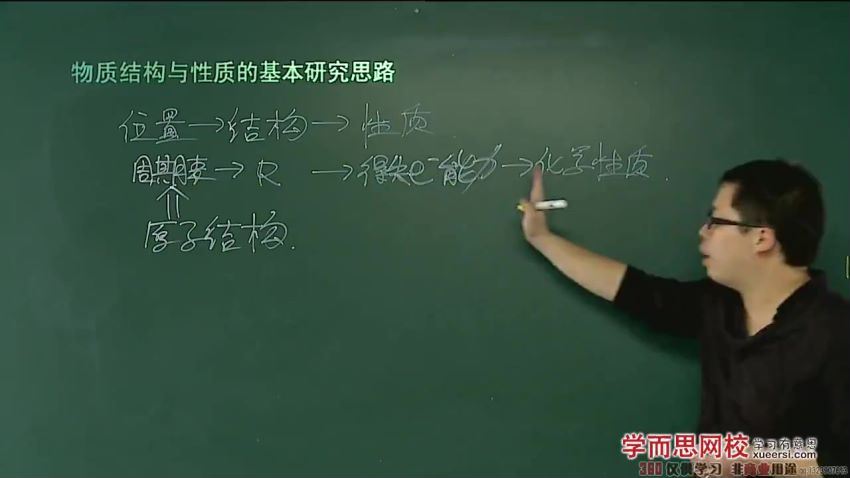 物质结构与性质的基本研究思路
位置→结构→性质
周期表→R→得失e⁻能力→化学性质.
⇑
原子结构.
学而思网校 学习有意思
xueersi.com
360仅供学习 非商业用途